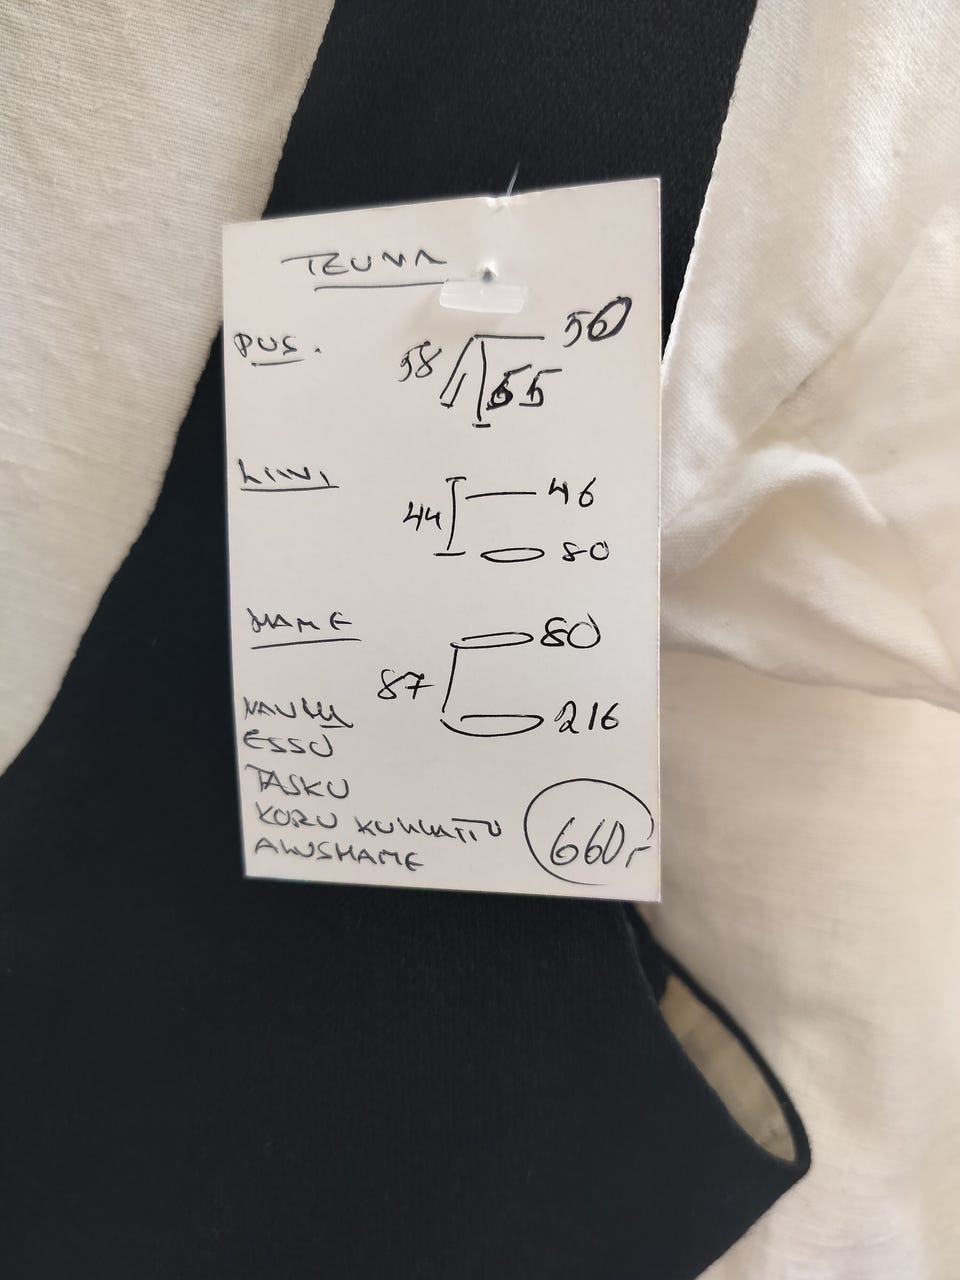 TEUVA
PUS.
58 55 50
LIIVI
44 46
80
HAME
80
87
216
ESSU
TASKU
KORU
ALUSHAME
660,-